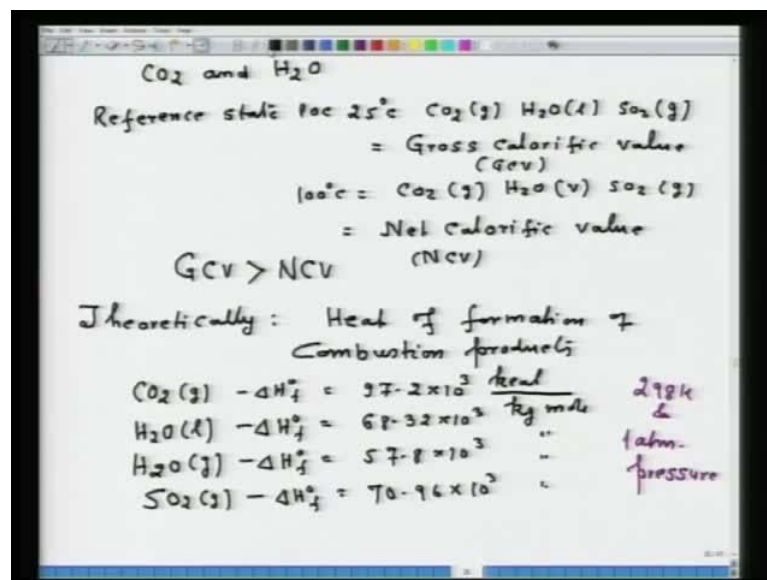 CO2 and H2O
Reference state POC 25°C CO2(g) H2O(l) SO2(g)
= Gross Calorific value
(GCV)
100°C = CO2(g) H2O(v) SO2(g)
= Net Calorific value
(NCV)
GCV > NCV
Theoretically : Heat of formation of
Combustion products
CO2(g) -ΔH°f = 97.2×10³ kcal / kg mole
H2O(l) -ΔH°f = 68.32×10³ "
H2O(g) -ΔH°f = 57.8×10³ "
SO2(g) -ΔH°f = 70.96×10³ "
298K
&
1 atm.
pressure